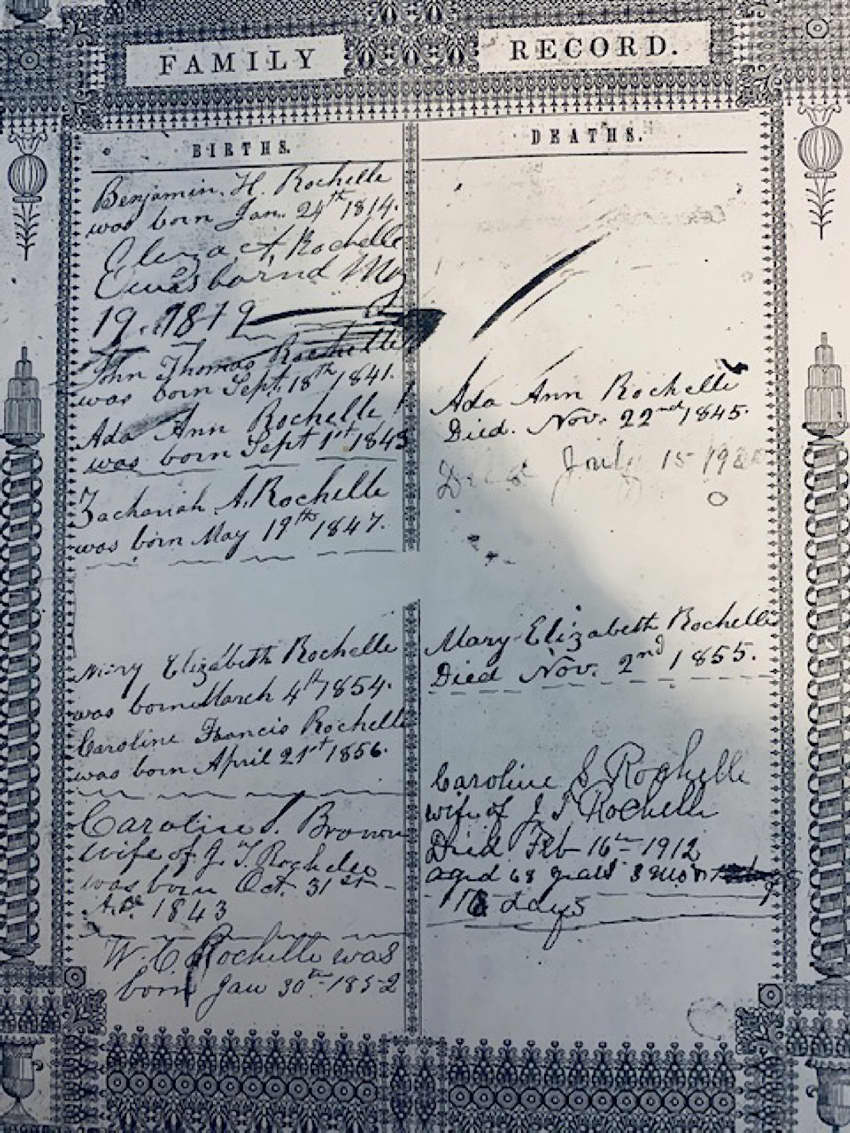 FAMILY RECORD.
BIRTHS.
Benjamin. H. Rochelle
was born Jan. 24th 1814.
Eliza A, Rochelle
was bornd May
19. 1819
John Thomas Rochelle
was born Sept. 18th 1841.
Ada Ann Rochelle
was born Sept 1st 1843
Zachariah A. Rochelle
was born May 19th 1847.
Mary Elizabeth Rochelle
was born March 4th 1854.
Caroline Francis Rochelle
was born April 21st 1856.
Caroline S. Brown
wife of J. T. Rochelle
was born Oct. 31st
A.D. 1843
W. C. Rochelle was
born Jan 30th 1852
DEATHS.
Ada Ann Rochelle
Died. Nov. 22nd 1845.
July 15
Mary Elizabeth Rochelle
Died Nov. 2nd 1855.
Caroline S. Rochelle
wife of J T Rochelle
Died Feb 16th 1912
aged 68 years 3 mon
days